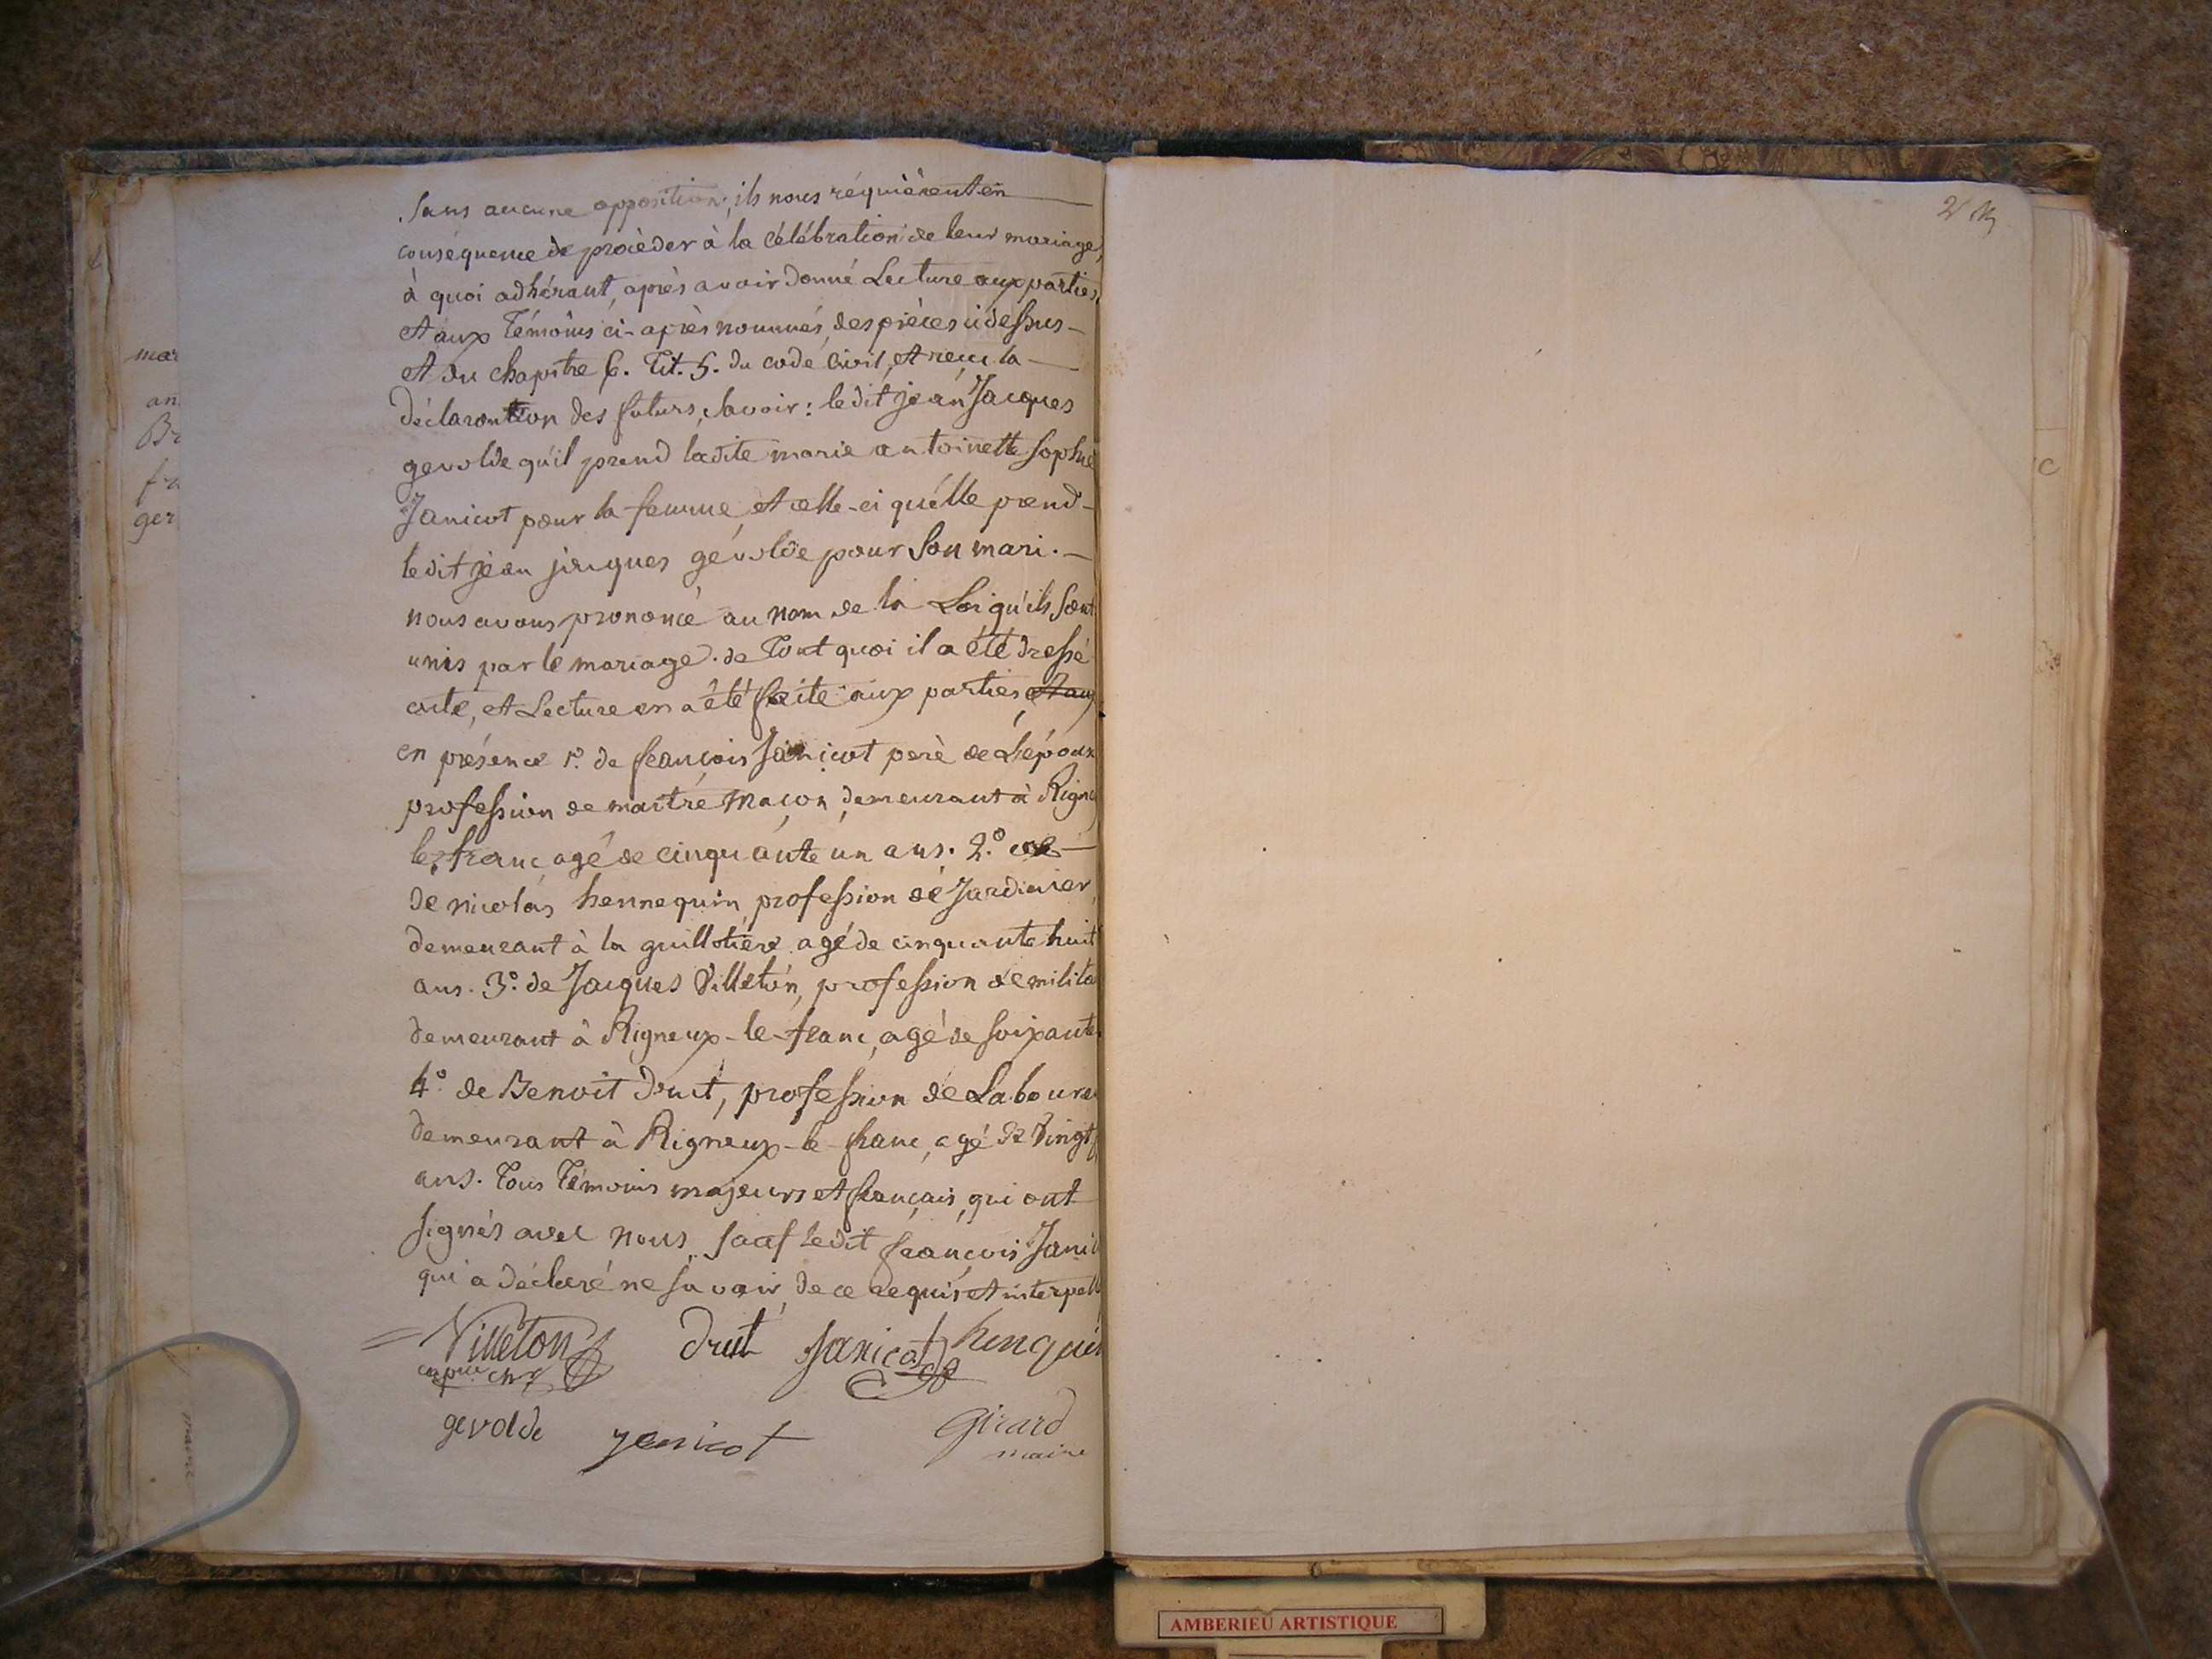 sans aucune opposition, ils nous réquièrent en
conséquence de procèder à la célébration de leur mariage,
à quoi adhérant, après avoir donné Lecture aux parties
et aux témoins ci-après nommés, des pièces ci dessus
et du chapitre 6. Tit. 5. du code Civil, et reçu la
déclaration des futurs, Savoir: ledit jean Jacques
gevolde qu'il prend ladite marie antoinette sophie
Janicot pour sa femme, et celle-ci qu'elle prend
ledit jean jacques gévolde pour Son mari.
nous avons prononcé au nom de la Loi qu'ils Sont
unis par le mariage. de tout quoi il a été dressé
acte, et Lecture en a été faite aux parties, et aux
en présence 1º. de françois Janicot perè de L'épouse
profession de maitre maçon, demeurant à Rigne
le franc, agé de cinquante un ans. 2.º
de nicolas hennequin, profession de Jardinier,
demeurant à la guillotière agé de cinquante huit
ans. 3.º de Jacques Villeton, profession de milita
demeurant à Rigneux-le-franc, agé de soixante
4.º de Benoit Drut, profession de Laboure
demeurant à Rigneux-le-franc, agé de Vingt
ans. tous témoins majeurs et français, qui ont
signés avec nous, sauf ledit françois Jani
qui a déclaré ne savoir, de ce requis et interpell
Villeton drut Janicot henquin
gevolde janicot Girard
maire
mar
an
Br
fr
ger
2
C
AMBERIEU ARTISTIQUE